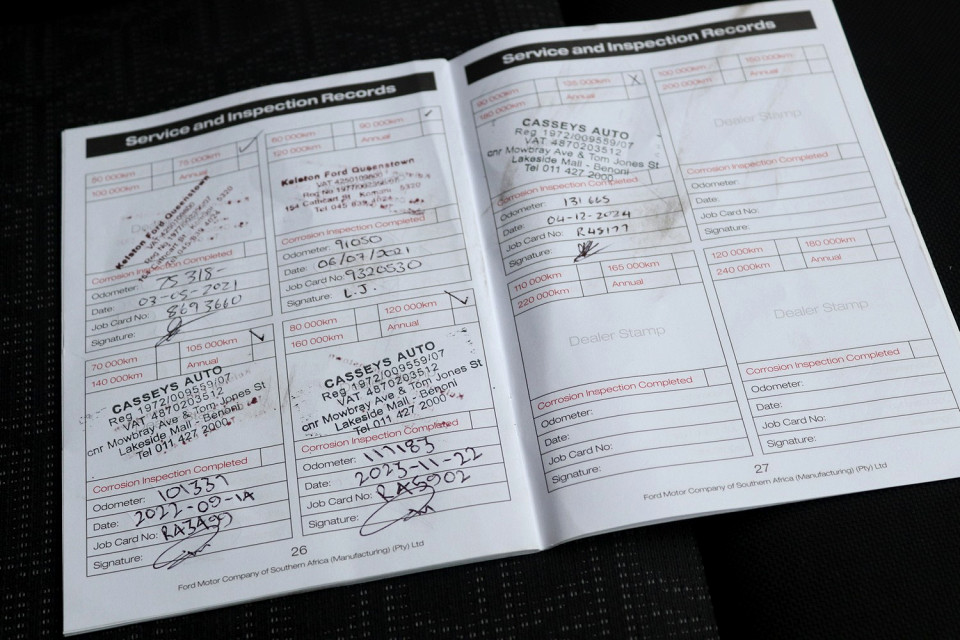 Service and Inspection Records
50 000km 75 000km ✓
100 000km Annual
Kelston Ford Queenstown
Corrosion Inspection Completed
Odometer: 75 318-
Date: 03-05-2021
Job Card No: 8693660
Signature:
60 000km 90 000km ✓
120 000km Annual
Kelston Ford Queenstown
Corrosion Inspection Completed
Odometer: 91050
Date: 06/07/2021
Job Card No: 9320530
Signature: L.J.
70 000km 105 000km ✓
140 000km Annual
CASSEYS AUTO
Reg 1972/009559/07
VAT 4870203512
cnr Mowbray Ave & Tom Jones St
Lakeside Mall - Benoni
Tel 011 427 2000
Corrosion Inspection Completed
Odometer: 101337
Date: 2022-09-14
Job Card No:
Signature:
80 000km 120 000km ✓
160 000km Annual
CASSEYS AUTO
Reg 1972/009559/07
VAT 4870203512
cnr Mowbray Ave & Tom Jones St
Lakeside Mall - Benoni
Tel 011 427 2000
Corrosion Inspection Completed
Odometer: 117183
Date: 2023-11-22
Job Card No: RAS902
Signature:
26
Ford Motor Company of Southern Africa (Manufacturing) (Pty) Ltd
Service and Inspection Records
90 000km 135 000km X
180 000km Annual
CASSEYS AUTO
Reg 1972/009559/07
VAT 4870203512
cnr Mowbray Ave & Tom Jones St
Lakeside Mall - Benoni
Tel 011 427 2000
Corrosion Inspection Completed
Odometer: 131 665
Date: 04-12-2024
Job Card No: R45177
Signature:
100 000km 150 000km
200 000km Annual
Dealer Stamp
Corrosion Inspection Completed
Odometer:
Date:
Job Card No:
Signature:
110 000km 165 000km
220 000km Annual
Dealer Stamp
Corrosion Inspection Completed
Odometer:
Date:
Job Card No:
Signature:
120 000km 180 000km
240 000km Annual
Dealer Stamp
Corrosion Inspection Completed
Odometer:
Date:
Job Card No:
Signature:
27
Ford Motor Company of Southern Africa (Manufacturing) (Pty) Ltd